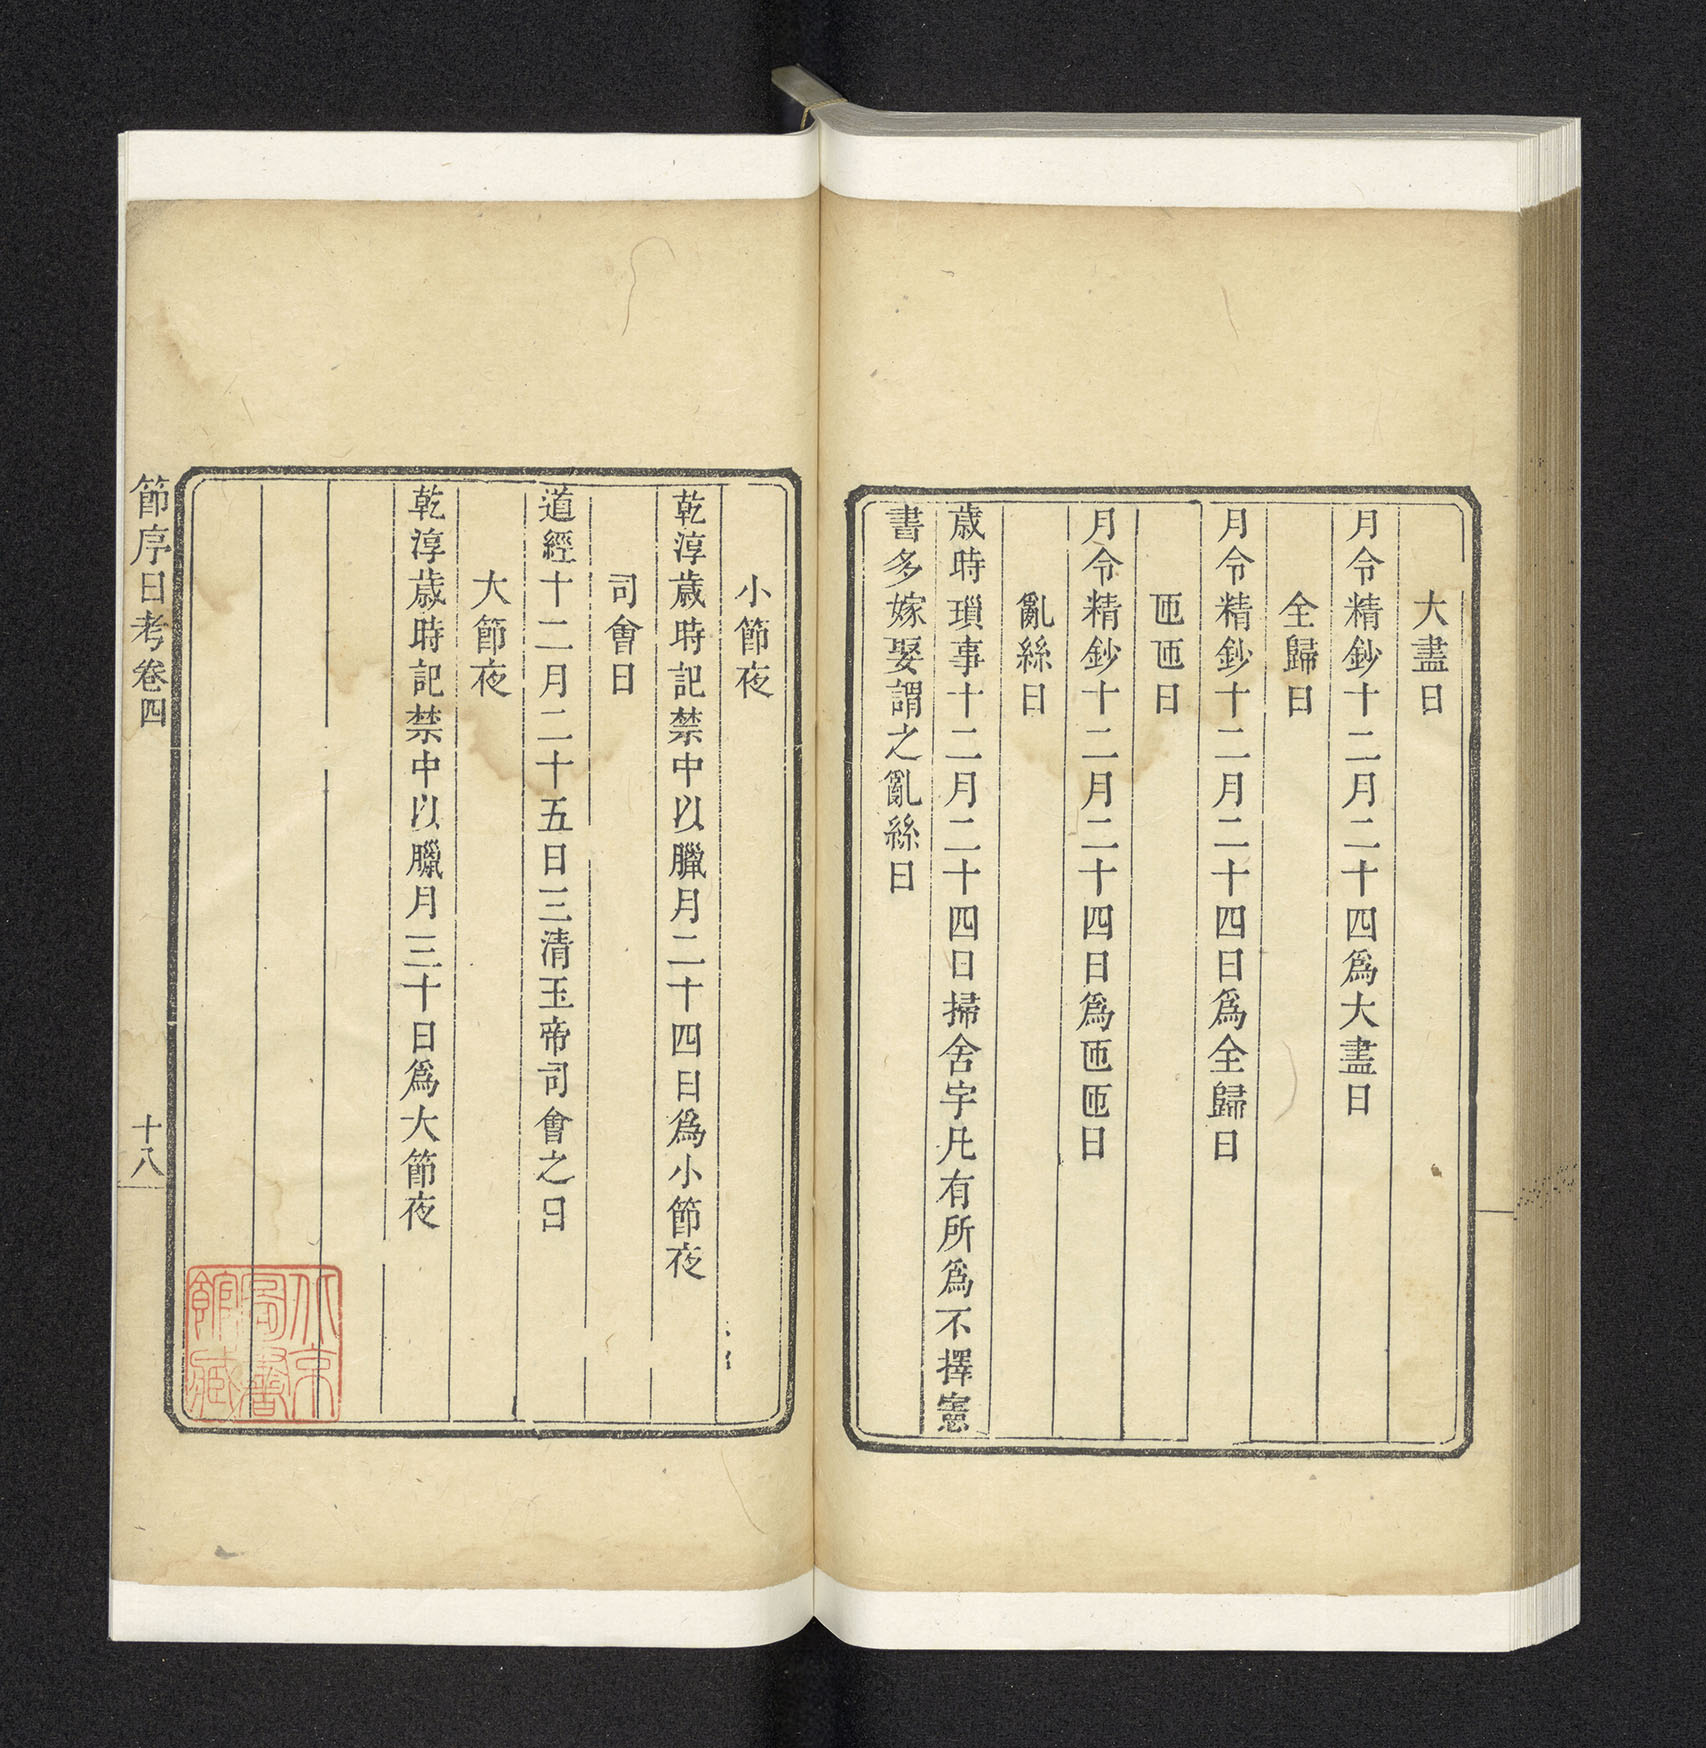 大盡日
月令精鈔十二月二十四爲大盡日
全歸日
月令精鈔十二月二十四日爲全歸日
匝匝日
月令精鈔十二月二十四日爲匝匝日
亂絲日
歲時瑣事十二月二十四日掃舍宇凡有所爲不擇憲
書多嫁娶謂之亂絲日
小節夜
乾淳歲時記禁中以臘月二十四日爲小節夜
司會日
道經十二月二十五日三清玉帝司會之日
大節夜
乾淳歲時記禁中以臘月三十日爲大節夜
節序日考卷四
十八
北京
圖書
館藏